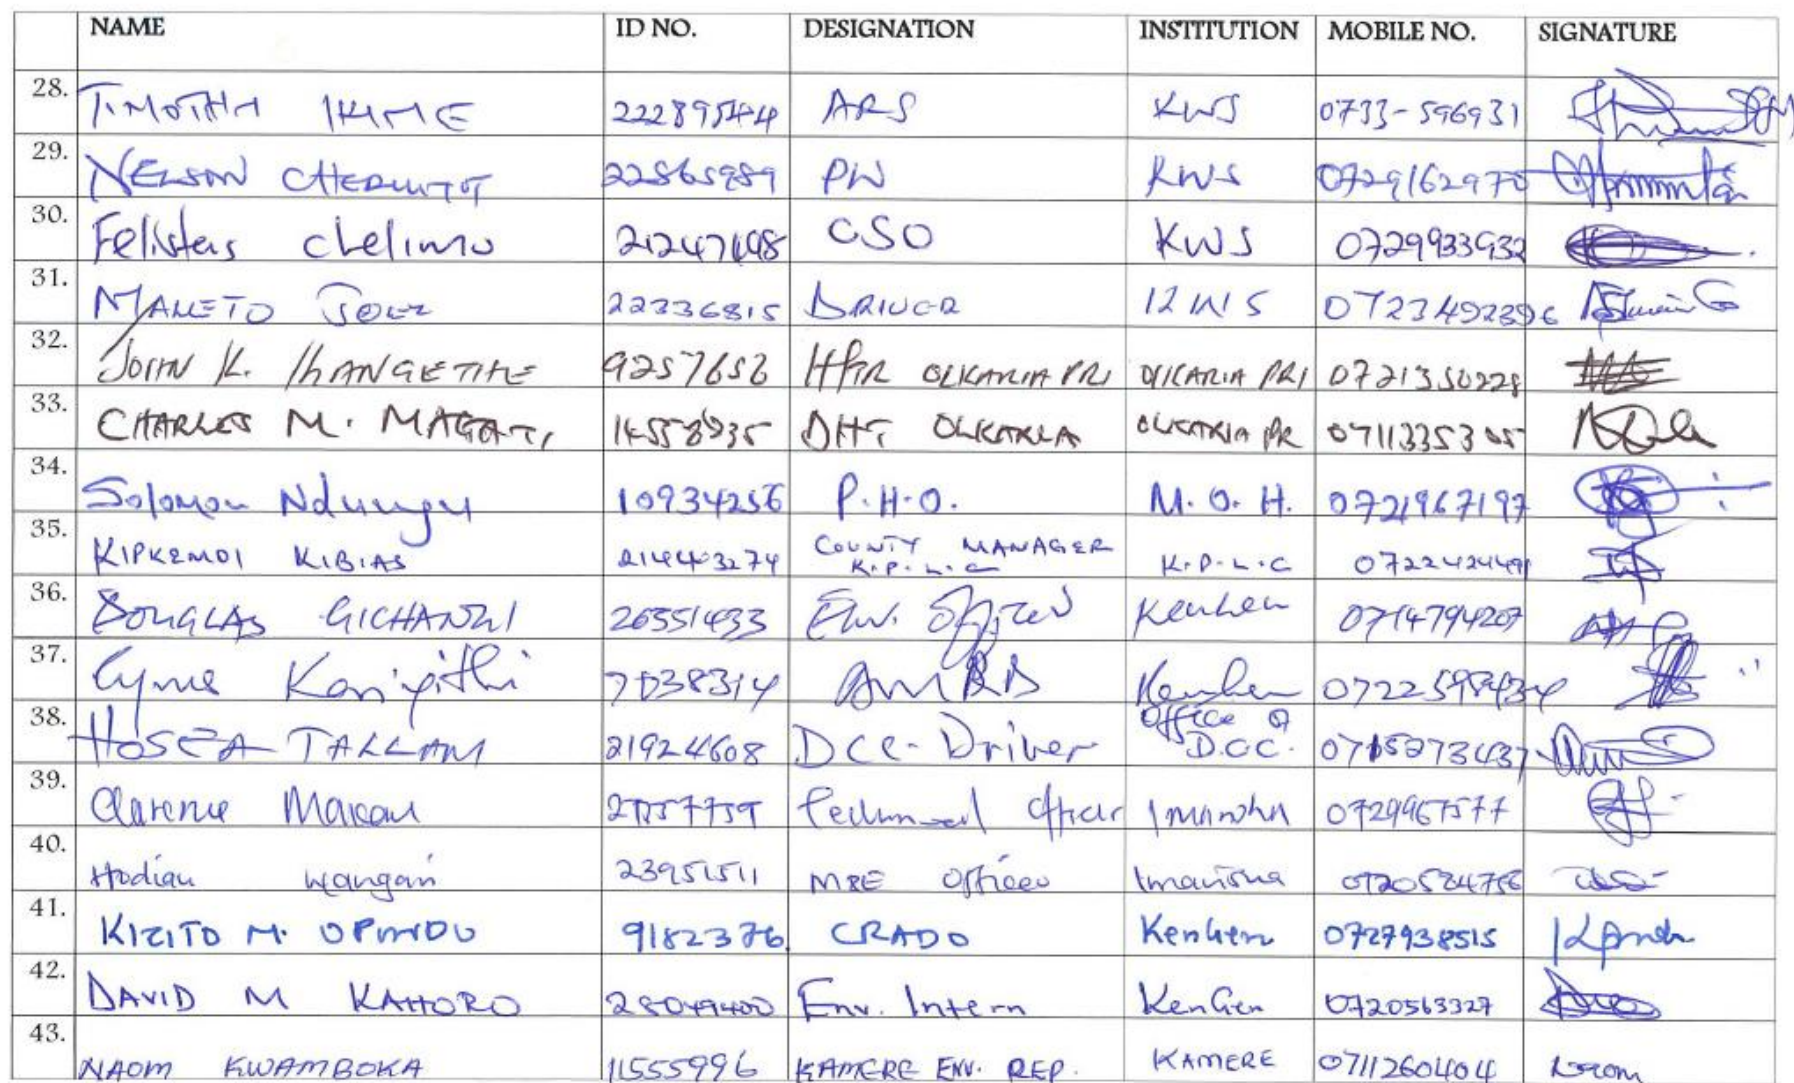 NAME ID NO. DESIGNATION INSTITUTION MOBILE NO. SIGNATURE
28. TIMOTHY IKIME 22289544 ARS KWS 0733-596931
29. NELSON CHERUIYOT 22865989 PW KWS 0729162970
30. Felisters chelimo CSO KWS 0729933932
31. MALETO JOEL 22336815 DRIVER KWS 0723492396
32. JOHN K. KHANGETHE 9257656 H/TR OLKARIA PRI OLKARIA PRI 0721350228
33. CHARLES M. MAGATI DHT OLKARIA OLKARIA PR 0711335305
34. Solomon Ndungu 10934256 P.H.O. M.O.H. 0721967197
35. KIPKEMOI KIBIAS 214403274 COUNTY MANAGER K.P.L.C K.P.L.C 0722424491
36. DOUGLAS GICHANGI 26551433 Env. Officer KenGen 0714794207
37. Cyrus Karigithi 7038314 KenGen
38. HOSEA TALLAM 21924608 DCC-Driver Office of D.C.C.
39. Clarence Macau Technical Officer Imarisha 0729967577
40. Hodian wangari 23951511 M&E Officer Imarisha 0720524756
41. KIZITO M. OPONDO 9182376 CRADO KenGen 0727938515
42. DAVID M KAHORO 28049400 Env. Intern KenGen 0720563327
43. NAOM KWAMBOKA 11555996 KAMERE ENV. REP. KAMERE 0711260404 Naom